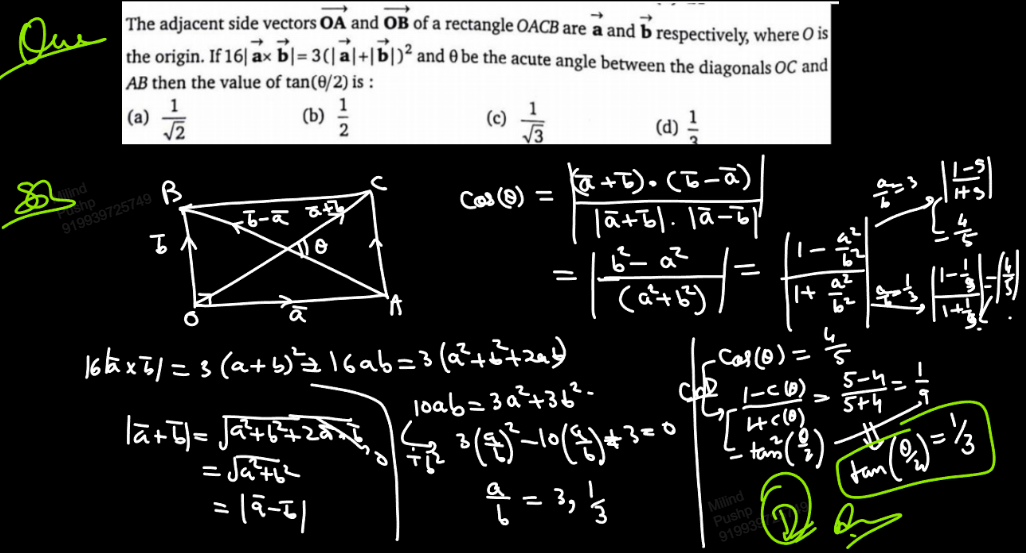 Que
The adjacent side vectors OA and OB of a rectangle OACB are a and b respectively, where O is
the origin. If 16| a× b|= 3(| a|+| b|)² and θ be the acute angle between the diagonals OC and
AB then the value of tan(θ/2) is :
(a) 1/√2 (b) 1/2 (c) 1/√3 (d) 1/3
Sol
Milind
Pushp
919939725749
B C
b̄-ā ā+b̄
b̄ θ
O ā A
Cos(θ) = |(ā+b̄)·(b̄-ā) / |ā+b̄|·|ā-b̄||
= |b²-a² / (a²+b²)| = |1 - a²/b² / 1 + a²/b²|
a/b=3 |1-9 / 1+9| = 4/5
a/b=1/3 |1-1/9 / 1+1/9| = |4/5|
16|ā×b̄| = 3(a+b)² ⇒ 16ab = 3(a²+b²+2ab)
10ab = 3a²+3b²
÷b² 3(a/b)²-10(a/b)+3=0
a/b = 3, 1/3
|ā+b̄| = √a²+b²+2ā·b̄ 0
= √a²+b²
= |ā-b̄|
Cos(θ) = 4/5
C&D
1-c(θ) / 1+c(θ) = 5-4 / 5+4 = 1/9
= tan²(θ/2)
tan(θ/2) = 1/3
Milind
Pushp
D